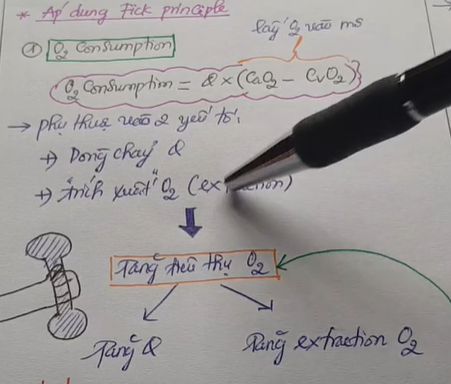 * Áp dụng Fick principle
lấy O₂ vào ms
① O₂ Consumption
O₂ Consumption = Q × (CaO₂ - CvO₂)
→ phụ thuộc vào 2 yếu tố:
→ Dòng chảy Q
→ trích xuất O₂ (extraction)
Tăng tiêu thụ O₂
Tăng Q
Tăng extraction O₂